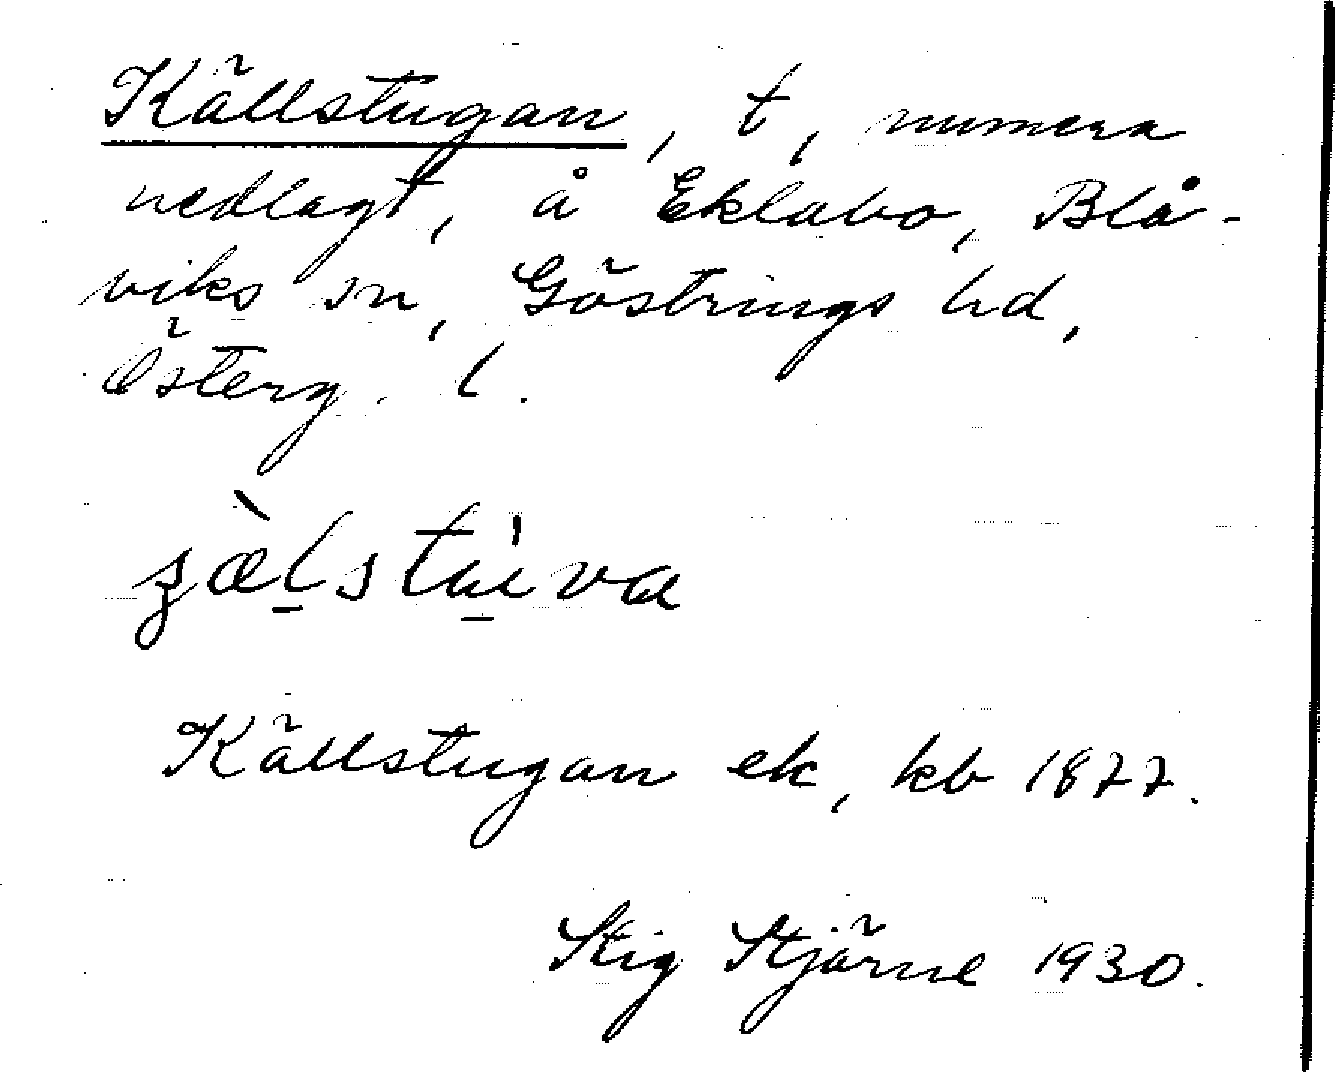 Källstugan, t, numera
nedlagt, å Eklabo, Blå-
viks sn, Göstrings hd,
Österg. l.
ʂæ̀l̠stu̠'va
Källstugan ek, kb 1877.
Stig Stjärne 1930.